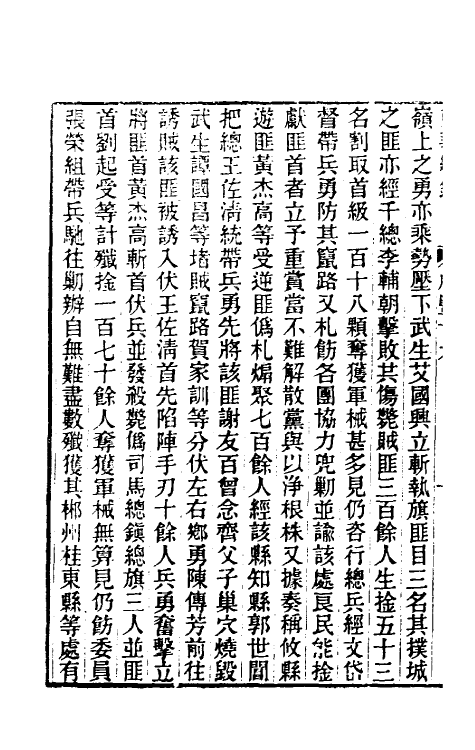 嶺上之勇亦乘勢壓下武生艾國興立斬執旗匪目三名其撲城
之匪亦經千總李輔朝擊敗共傷斃賊匪三百餘人生擒五十三
名割取首級一百十八顆奪獲軍械甚多見仍咨行總兵經文岱
督帶兵勇防其竄路又札飭各團協力兜勦並諭該處良民能擒
獻匪首者立予重賞當不難解散黨與以淨根株又據奏稱攸縣
遊匪黃杰高等受逆匪僞札煽聚七百餘人經該縣知縣郭世閶
把總王佐清統帶兵勇先將該匪謝友百曾念齊父子巢穴燒毀
武生譚國昌等堵賊竄路賀家訓等分伏左右鄉勇陳傳芳前往
誘賊該匪被誘入伏王佐清首先陷陣手刃十餘人兵勇奮擊立
將匪首黃杰高斬首伏兵並發殺斃僞司馬總鎮總旗三人並匪
首劉起受等計殲擒一百七十餘人奪獲軍械無算見仍飭委員
張榮組帶兵馳往勦辦自無難盡數殲獲其郴州桂東縣等處有